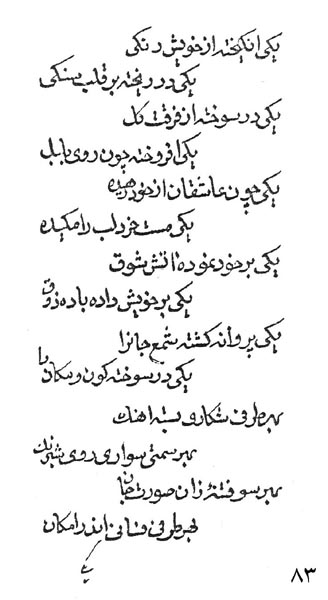 یکی انکیخته از خویش رنکی
یکی در ریخته بر قلب سنکی
یکی در سوخته از فرقت کل
یکی افروخته چون روی بلبل
یکی چون عاشقان از خود رهیده
یکی مست خرد لب را مکیده
یکی بر خود نموده اتش شوق
یکی بر خویش داده باده ذوق
یکی پروانه کشته شمع جانرا
یکی در سوخته کون و مکان را
بهر طرفی شکاری بسته اهنك
بهر سمتی سواری روی شبرنك
بهر سو فتنه زان صورت جان
بهر طرفی فتانی اندر امکان
۸۳